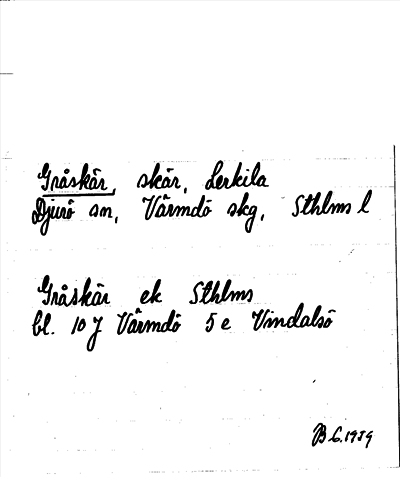 Gråskär, skär, Lerkila
Djurö sn, Värmdö skg, Sthlms l
Gråskär ek Sthlms
bl. 10 J Värmdö 5 e Vindalsö
B G. 1959